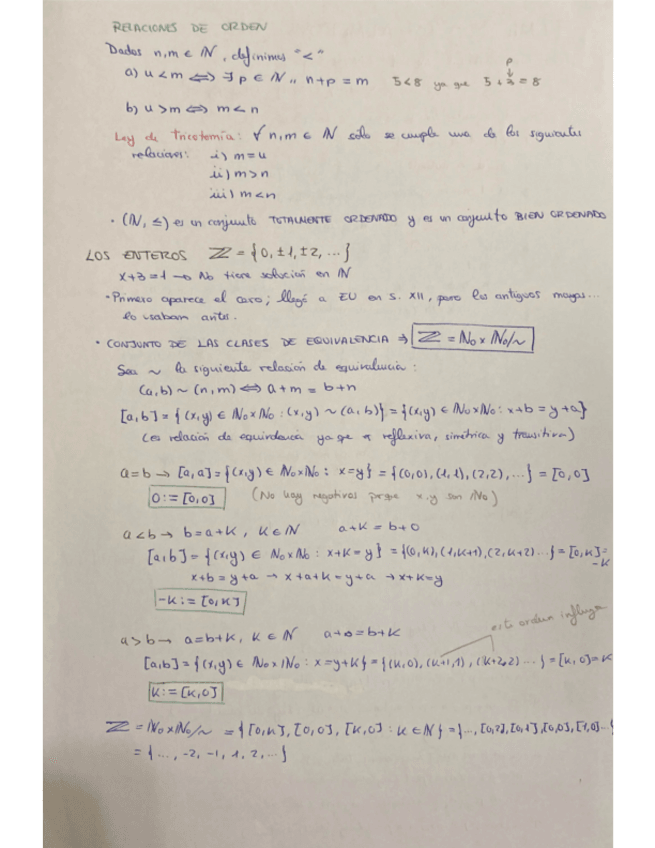 RELACIONES DE ORDEN
Dados n,m ∈ ℕ, definimos "<"
a) n<m ⟺ ∃ p ∈ ℕ ,, n+p = m 5<8 ya que 5+3=8
p
↓
b) n>m ⟺ m<n
Ley de Tricotomía: ∀ n,m ∈ ℕ sólo se cumple una de las siguientes
relaciones: i) m=n
ii) m>n
iii) m<n
· (ℕ, ≤) es un conjunto TOTALMENTE ORDENADO y es un conjunto BIEN ORDENADO
LOS ENTEROS ℤ = {0, ±1, ±2, ...}
x+3=1 → No tiene solución en ℕ
· Primero aparece el cero; llegó a EU en s. XII, pero los antiguos mayas...
lo usaban antes.
· CONJUNTO DE LAS CLASES DE EQUIVALENCIA ⇒ ℤ = ℕ₀×ℕ₀/~
Sea ~ la siguiente relación de equivalencia:
(a,b) ~ (n,m) ⟺ a+m = b+n
[a,b] = {(x,y) ∈ ℕ₀×ℕ₀ : (x,y) ~ (a,b)} = {(x,y) ∈ ℕ₀×ℕ₀ : x+b = y+a}
(es relación de equivalencia ya que es reflexiva, simétrica y transitiva)
a=b → [a,a] = {(x,y) ∈ ℕ₀×ℕ₀ : x=y} = {(0,0), (1,1), (2,2), ...} = [0,0]
0:= [0,0] (No hay negativos porque x,y son ℕ₀)
a<b → b=a+K, K∈ℕ a+K = b+0
[a,b] = {(x,y) ∈ ℕ₀×ℕ₀ : x+K = y} = {(0,K), (1,K+1), (2,K+2) ...} = [0,K] =
-K
x+b = y+a → x+a+K = y+a → x+K=y
-K:= [0,K]
este orden influye
a>b → a=b+K, K∈ℕ a+0=b+K
[a,b] = {(x,y) ∈ ℕ₀×ℕ₀ : x=y+K} = {(K,0), (K+1,1), (K+2,2) ...} = [K,0] = K
K:= [K,0]
ℤ = ℕ₀×ℕ₀/~ = {[0,K], [0,0], [K,0] : K∈ℕ} = {..., [0,2], [0,1], [0,0], [1,0]...}
= {..., -2, -1, 1, 2, ...}